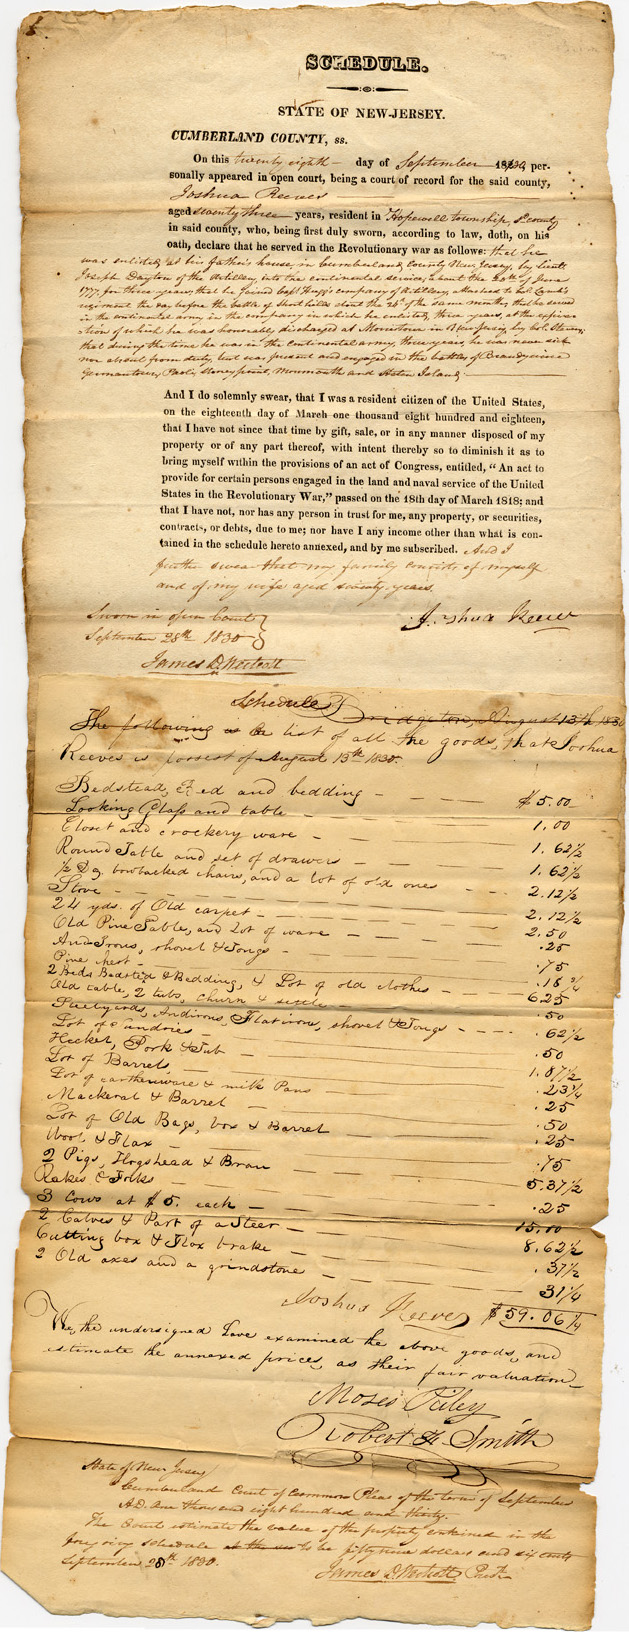 SCHEDULE.
STATE OF NEW-JERSEY.
CUMBERLAND COUNTY, ss.
On this twenty eighth day of September 1830, per-
sonally appeared in open court, being a court of record for the said county,
Joshua Reeves
aged seventy three years, resident in Hopewell township, sd. county
in said county, who, being first duly sworn, according to law, doth, on his
oath, declare that he served in the Revolutionary war as follows: that he
was enlisted at his father's house, in Cumberland County New Jersey, by Lieut
Joseph Dayton of the artillery, into the continental service, about the 20th of June
1777, for three years, that he joined Capt. Hugg's company of Artillery attached to Col. Lamb's
regiment the day before the battle of Short hills about the 26th of the same month, that he served
in the continental army in the company in which he enlisted, three years, at the expira
ation of which he was honorably discharged at Morristown in New Jersey by Col.
that during the time he was in the continental army, three years, he was never sick
nor absent from duty, but was present and engaged in the battles of Brandywine
Germantown, Paoli, Stoneypoint, Monmouth and Staten Island,
And I do solemnly swear, that I was a resident citizen of the United States,
on the eighteenth day of March one thousand eight hundred and eighteen,
that I have not since that time by gift, sale, or in any manner disposed of my
property or of any part thereof, with intent thereby so to diminish it as to
bring myself within the provisions of an act of Congress, entitled, "An act to
provide for certain persons engaged in the land and naval service of the United
States in the Revolutionary War," passed on the 18th day of March 1818; and
that I have not, nor has any person in trust for me, any property, or securities,
contracts, or debts, due to me; nor have I any income other than what is con-
tained in the schedule hereto annexed, and by me subscribed. And I
further swear that my family consists of myself
and of my wife aged seventy years.
Sworn in open Court
September 28th 1830
Joshua Reeves
James D Westcott
Schedule Bridgeton, August 13th 1830
The following is a list of all the goods, that Joshua
Reeves is possest of August 13th 1830.
Bedstead, Bed and bedding $5.00
Looking Glass and table 1.00
Closet and crockery ware 1.62½
Round Table and set of drawers 1.62½
½ Dz. bowbacked chairs, and a lot of old ones 2.12½
Stove 2.12½
24 yds. of Old carpet 2.50
Old Pine Table, and Lot of ware .25
Andirons, shovel & Tongs .75
Pine chest .18¾
2 Beds Bedsted & Bedding, & Lot of old clothes 6.25
Old table, 2 tubs, churn & settle .50
Steelyards, Andirons, Flatirons, shovel & Tongs .62½
Lot of Sundries .50
Heckel, Pork & Tub 1.87½
Lot of Barrels .23¾
Lot of earthenware & milk Pans .25
Mackeral & Barrel .50
Lot of Old Bags, box & Barrel .25
Wool & Flax .75
2 Pigs, Hogshead & Bran 5.37½
Rakes & Forks .25
3 Cows at $5. each 15.00
2 Calves & Part of a Steer 8.62½
Cutting box & Flax brake .37½
2 Old axes and a grindstone 31¼
Joshua Reeves $59.06¼
We, the undersigned have examined the above goods, and
estimate the annexed prices, as their fair valuation
Moses Riley
Robert H. Smith
State of New Jersey
Cumberland Court of Common Pleas of the term of September
A.D. One thousand eight hundred and thirty.
The Court estimate the value of the property contained in the
foregoing schedule to be fifty nine dollars and six cents
September 28th 1830.
James D Westcott